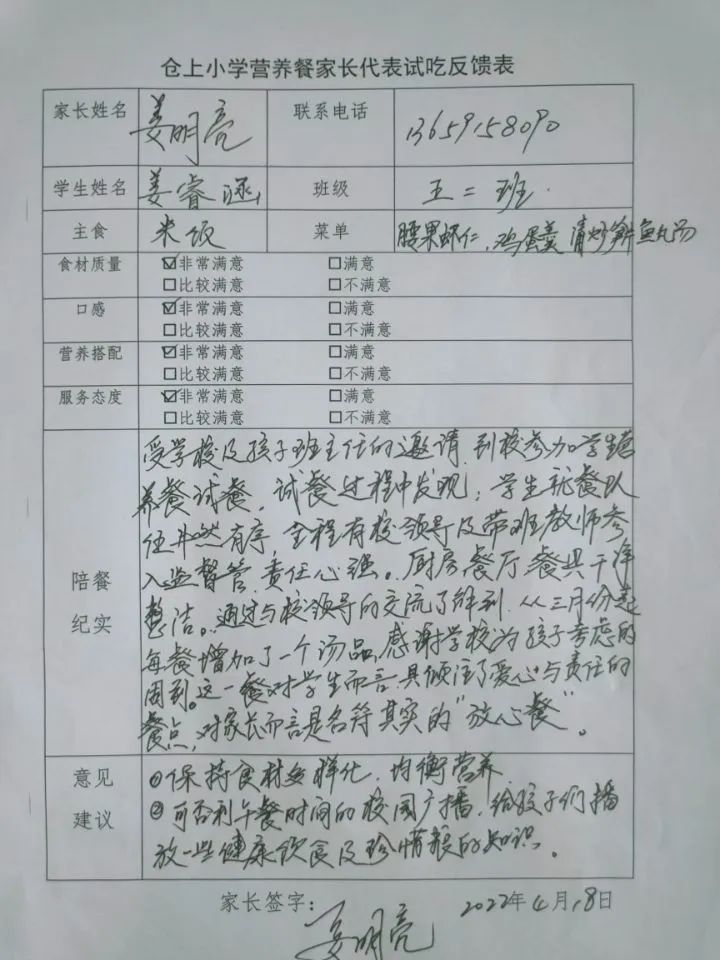 仓上小学营养餐家长代表试吃反馈表
家长姓名 姜明亮 联系电话 13659158090
学生姓名 姜睿涵 班级 五二班.
主食 米饭 菜单 腰果虾仁,鸡蛋羹 清炒 鱼丸汤
食材质量 ☑非常满意 □满意
□比较满意 □不满意
口感 ☑非常满意 □满意
□比较满意 □不满意
营养搭配 ☑非常满意 □满意
□比较满意 □不满意
服务态度 ☑非常满意 □满意
□比较满意 □不满意
陪餐
纪实
受学校及孩子班主任的邀请,到校参加学生营
养餐试餐,试餐过程中发现:学生就餐队
伍井然有序,全程有校领导及带班教师参
入监督管,责任心强。厨房餐厅餐具干净
整洁。通过与校领导的交流了解到,从三月份起
每餐增加了一个汤品,感谢学校为孩子考虑的
周到。这一餐对学生而言,是倾注了爱心与责任的
餐点,对家长而言是名符其实的“放心餐”。
意见
建议
①保持食材多样化,均衡营养
②可否利午餐时间的校园广播,给孩子们播
放一些健康饮食及珍惜粮的知识。
家长签字: 2022年4月18日
姜明亮